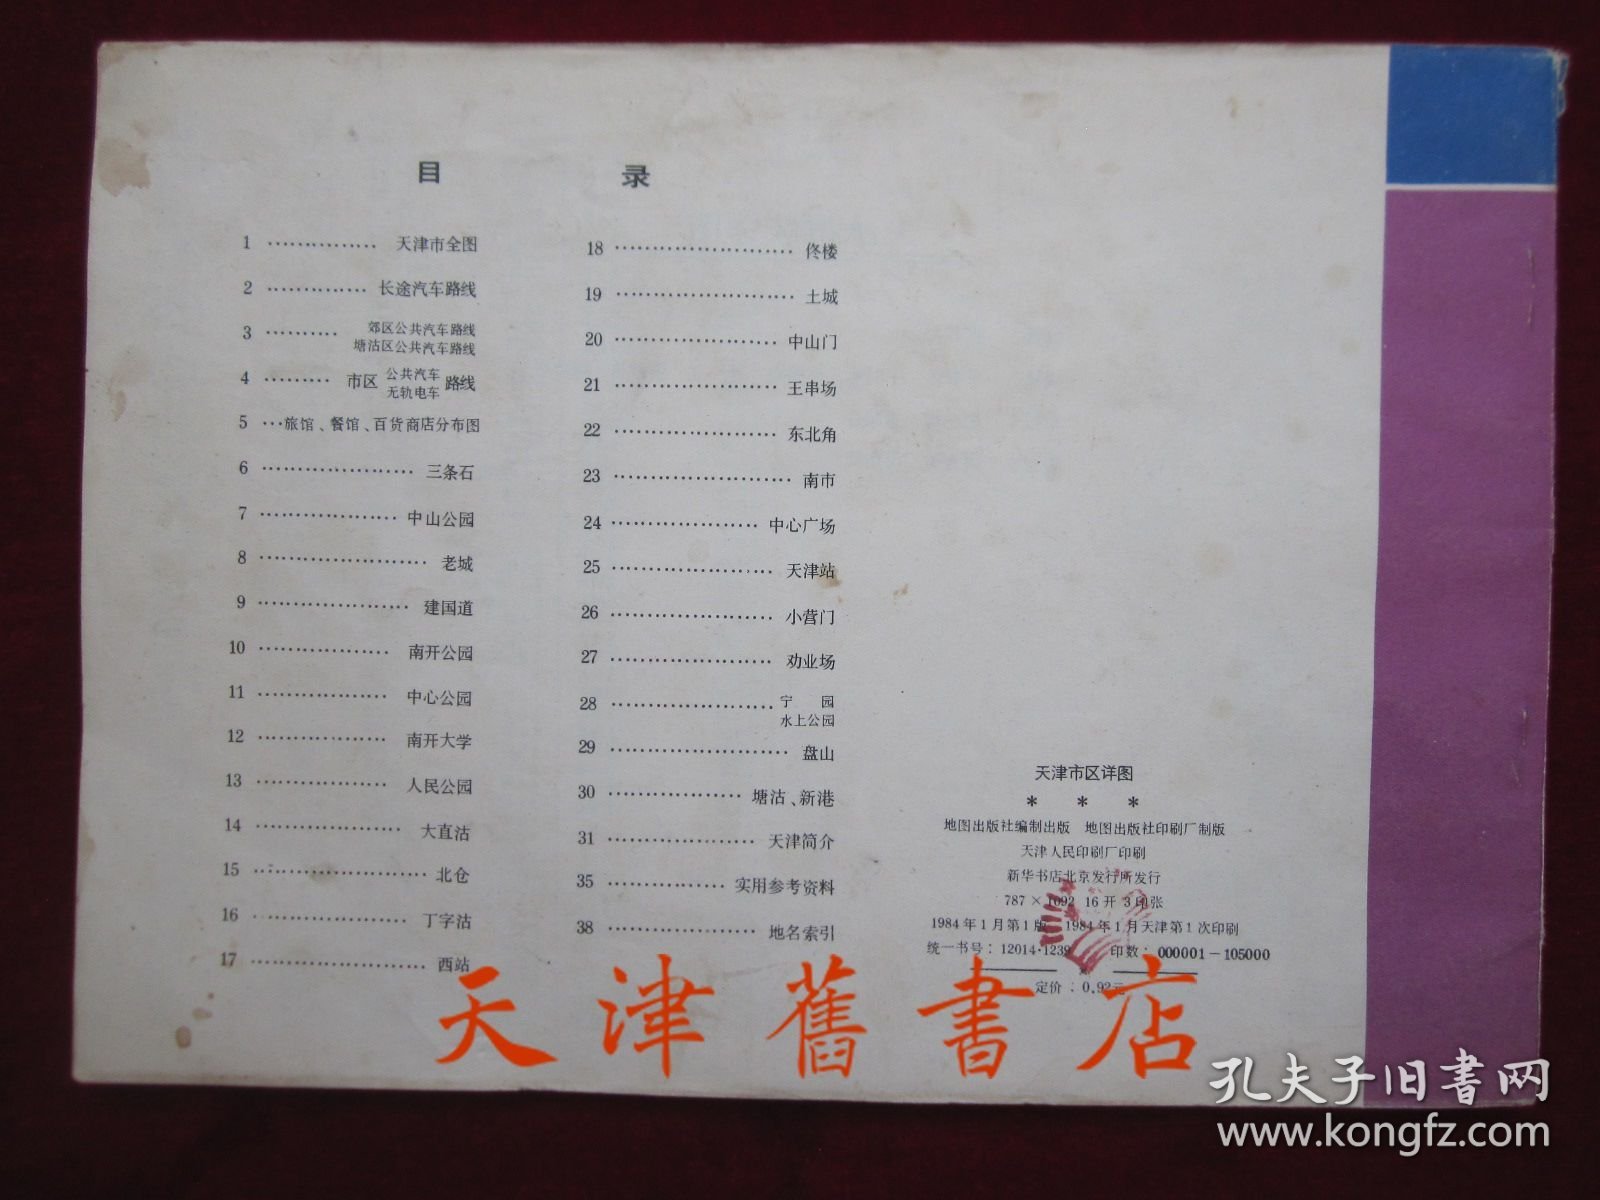 目 录
1 …………… 天津市全图
2 …………… 长途汽车路线
3 ………… 郊区公共汽车路线
塘沽区公共汽车路线
4 ……… 市区 公共汽车 无轨电车 路线
5 …旅馆、餐馆、百货商店分布图
6 ………………… 三条石
7 ………………… 中山公园
8 …………………… 老城
9 ………………… 建国道
10 ……………… 南开公园
11 ……………… 中心公园
12 ……………… 南开大学
13 ……………… 人民公园
14 ………………… 大直沽
15 …………………… 北仓
16 ………………… 丁字沽
17 …………………… 西站
18 …………………… 佟楼
19 …………………… 土城
20 ………………… 中山门
21 ………………… 王串场
22 ………………… 东北角
23 …………………… 南市
24 ………………… 中心广场
25 ………………… 天津站
26 ………………… 小营门
27 ………………… 劝业场
28 ………………… 宁 园
水上公园
29 …………………… 盘山
30 ……………… 塘沽、新港
31 ………………… 天津简介
35 ……………… 实用参考资料
38 ………………… 地名索引
天津市区详图
* * *
地图出版社编制出版 地图出版社印刷厂制版
天津人民印刷厂印刷
新华书店北京发行所发行
787×1092 16开 3印张
1984年1月第1版 1984年1月天津第1次印刷
统一书号：12014·1239 印数：000001－105000
定价：0.92元
天津舊書店
孔夫子旧书网
www.kongfz.com